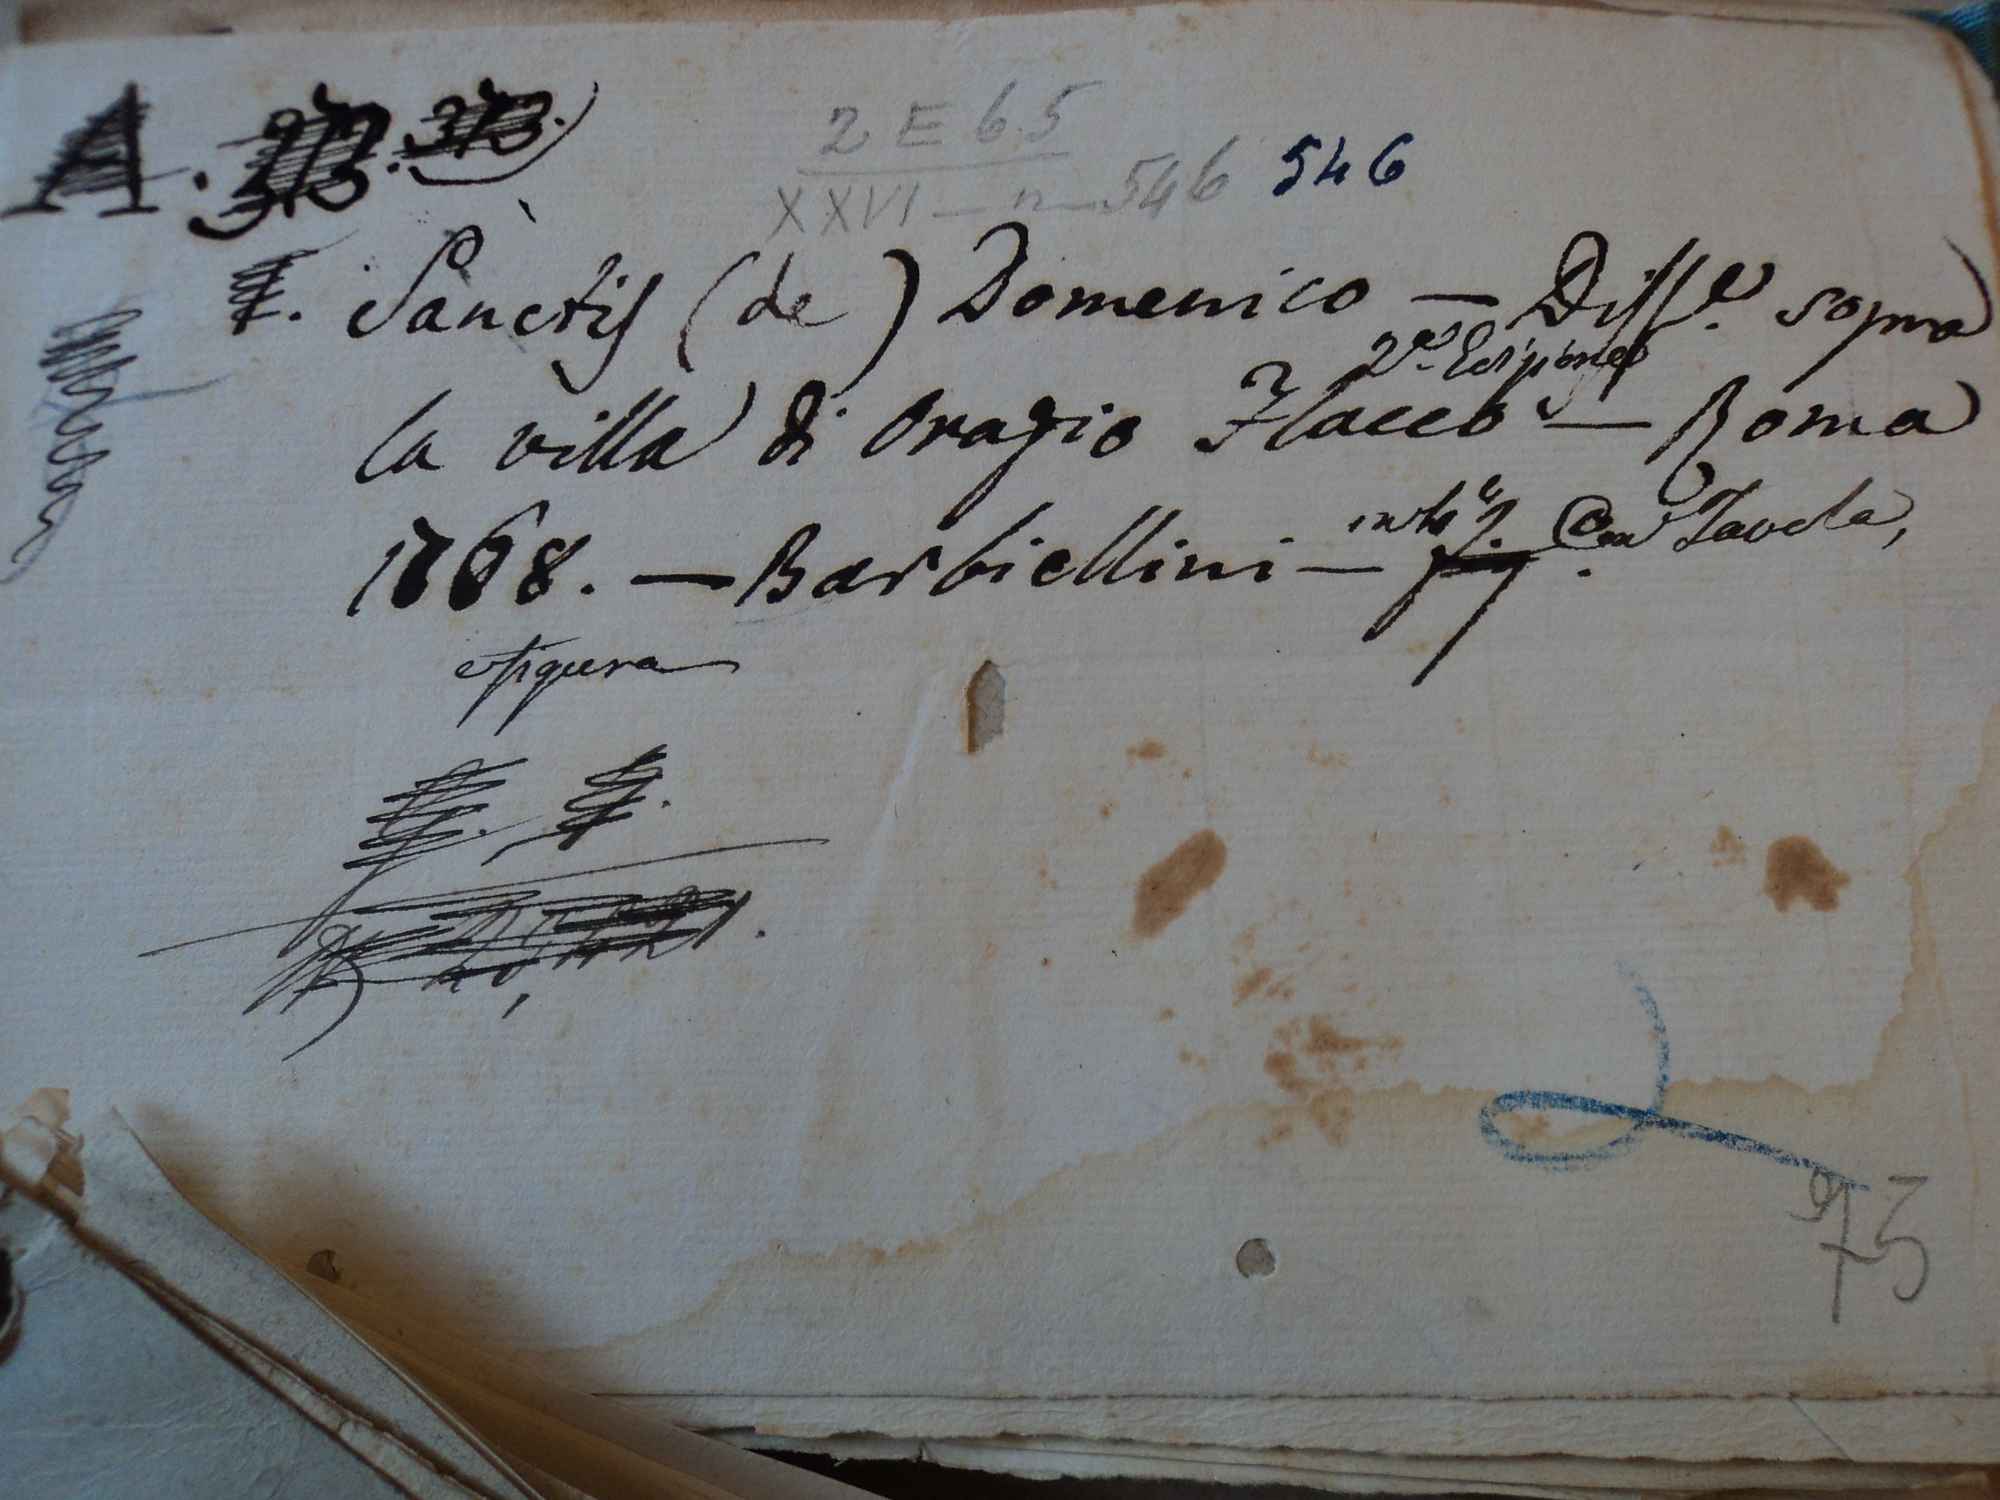 A. 373
2 E 65
XXVI - n 546 546
Sanctis (de) Domenico — Diss.e sopra
2a Edizione
la villa di Orazio Flacco — Roma
1768. — Barbiellini — in 4° Con Tavola,
e figura
93